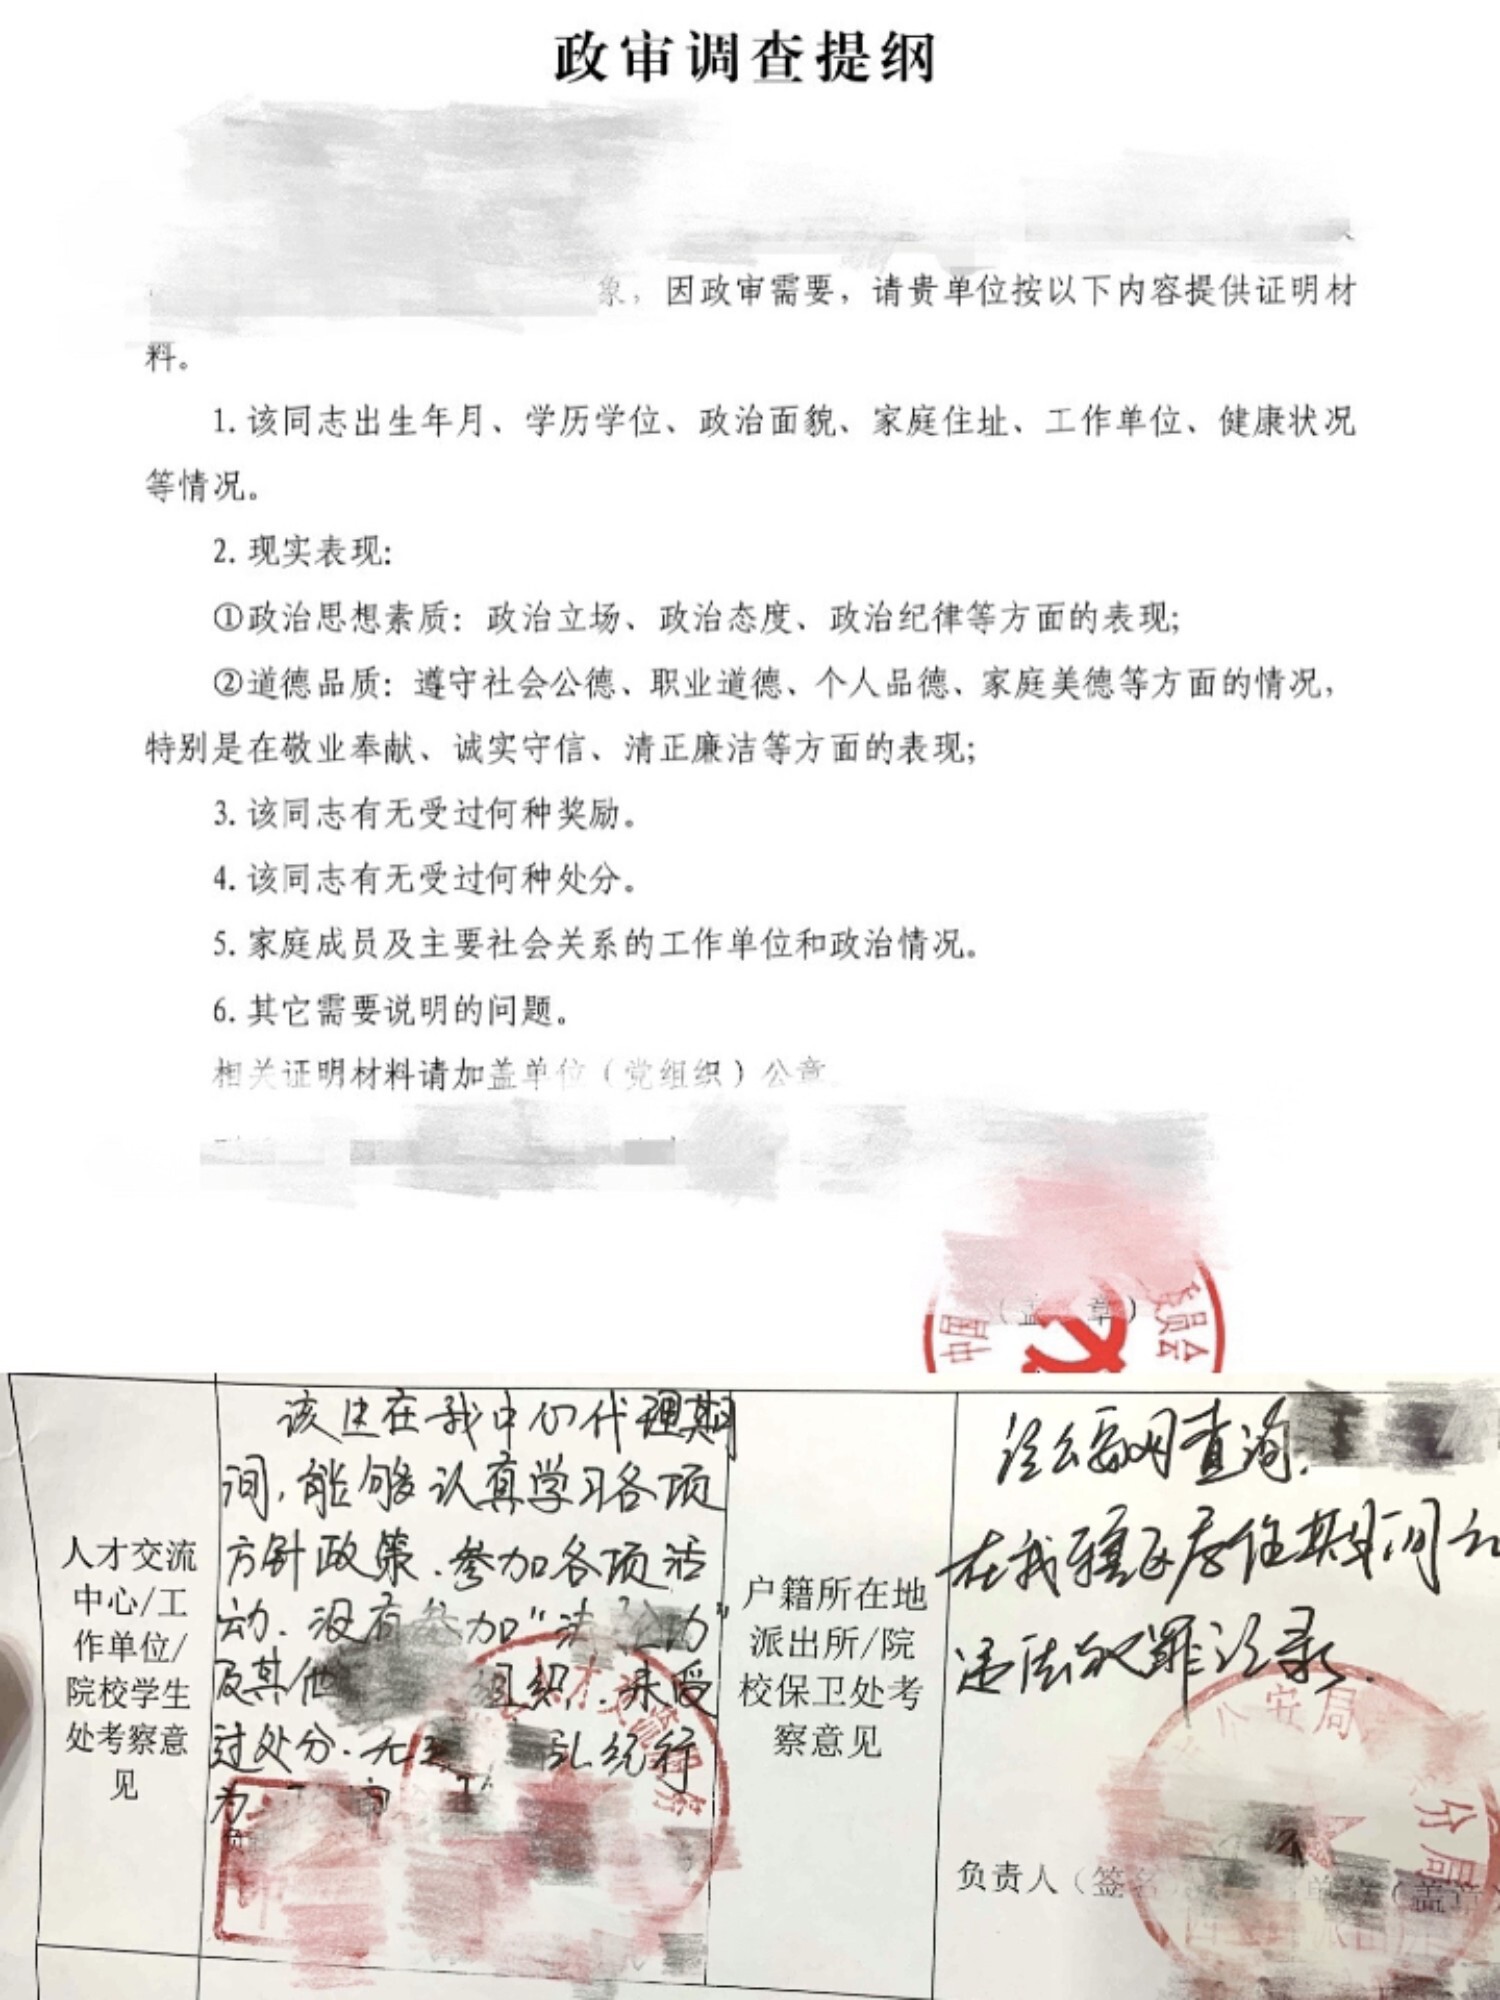 政审调查提纲
象，因政审需要，请贵单位按以下内容提供证明材
料。
1.该同志出生年月、学历学位、政治面貌、家庭住址、工作单位、健康状况
等情况。
2.现实表现：
①政治思想素质：政治立场、政治态度、政治纪律等方面的表现；
②道德品质：遵守社会公德、职业道德、个人品德、家庭美德等方面的情况，
特别是在敬业奉献、诚实守信、清正廉洁等方面的表现；
3.该同志有无受过何种奖励。
4.该同志有无受过何种处分。
5.家庭成员及主要社会关系的工作单位和政治情况。
6.其它需要说明的问题。
相关证明材料请加盖单位（党组织）公章
（盖 章）
中国 员会
人才交流
中心/工
作单位/
院校学生
处考察意
见
该生在我中心代理期
间，能够认真学习各项
方针政策．参加各项活
动．没有参加“法 功”
及其他 组织．未受
过处分．无 乱纪行
为
户籍所在地
派出所/院
校保卫处考
察意见
经公安网查询．
在我辖区居住期间
违法犯罪记录．
公安局 分局
负责人（签名 （盖章）